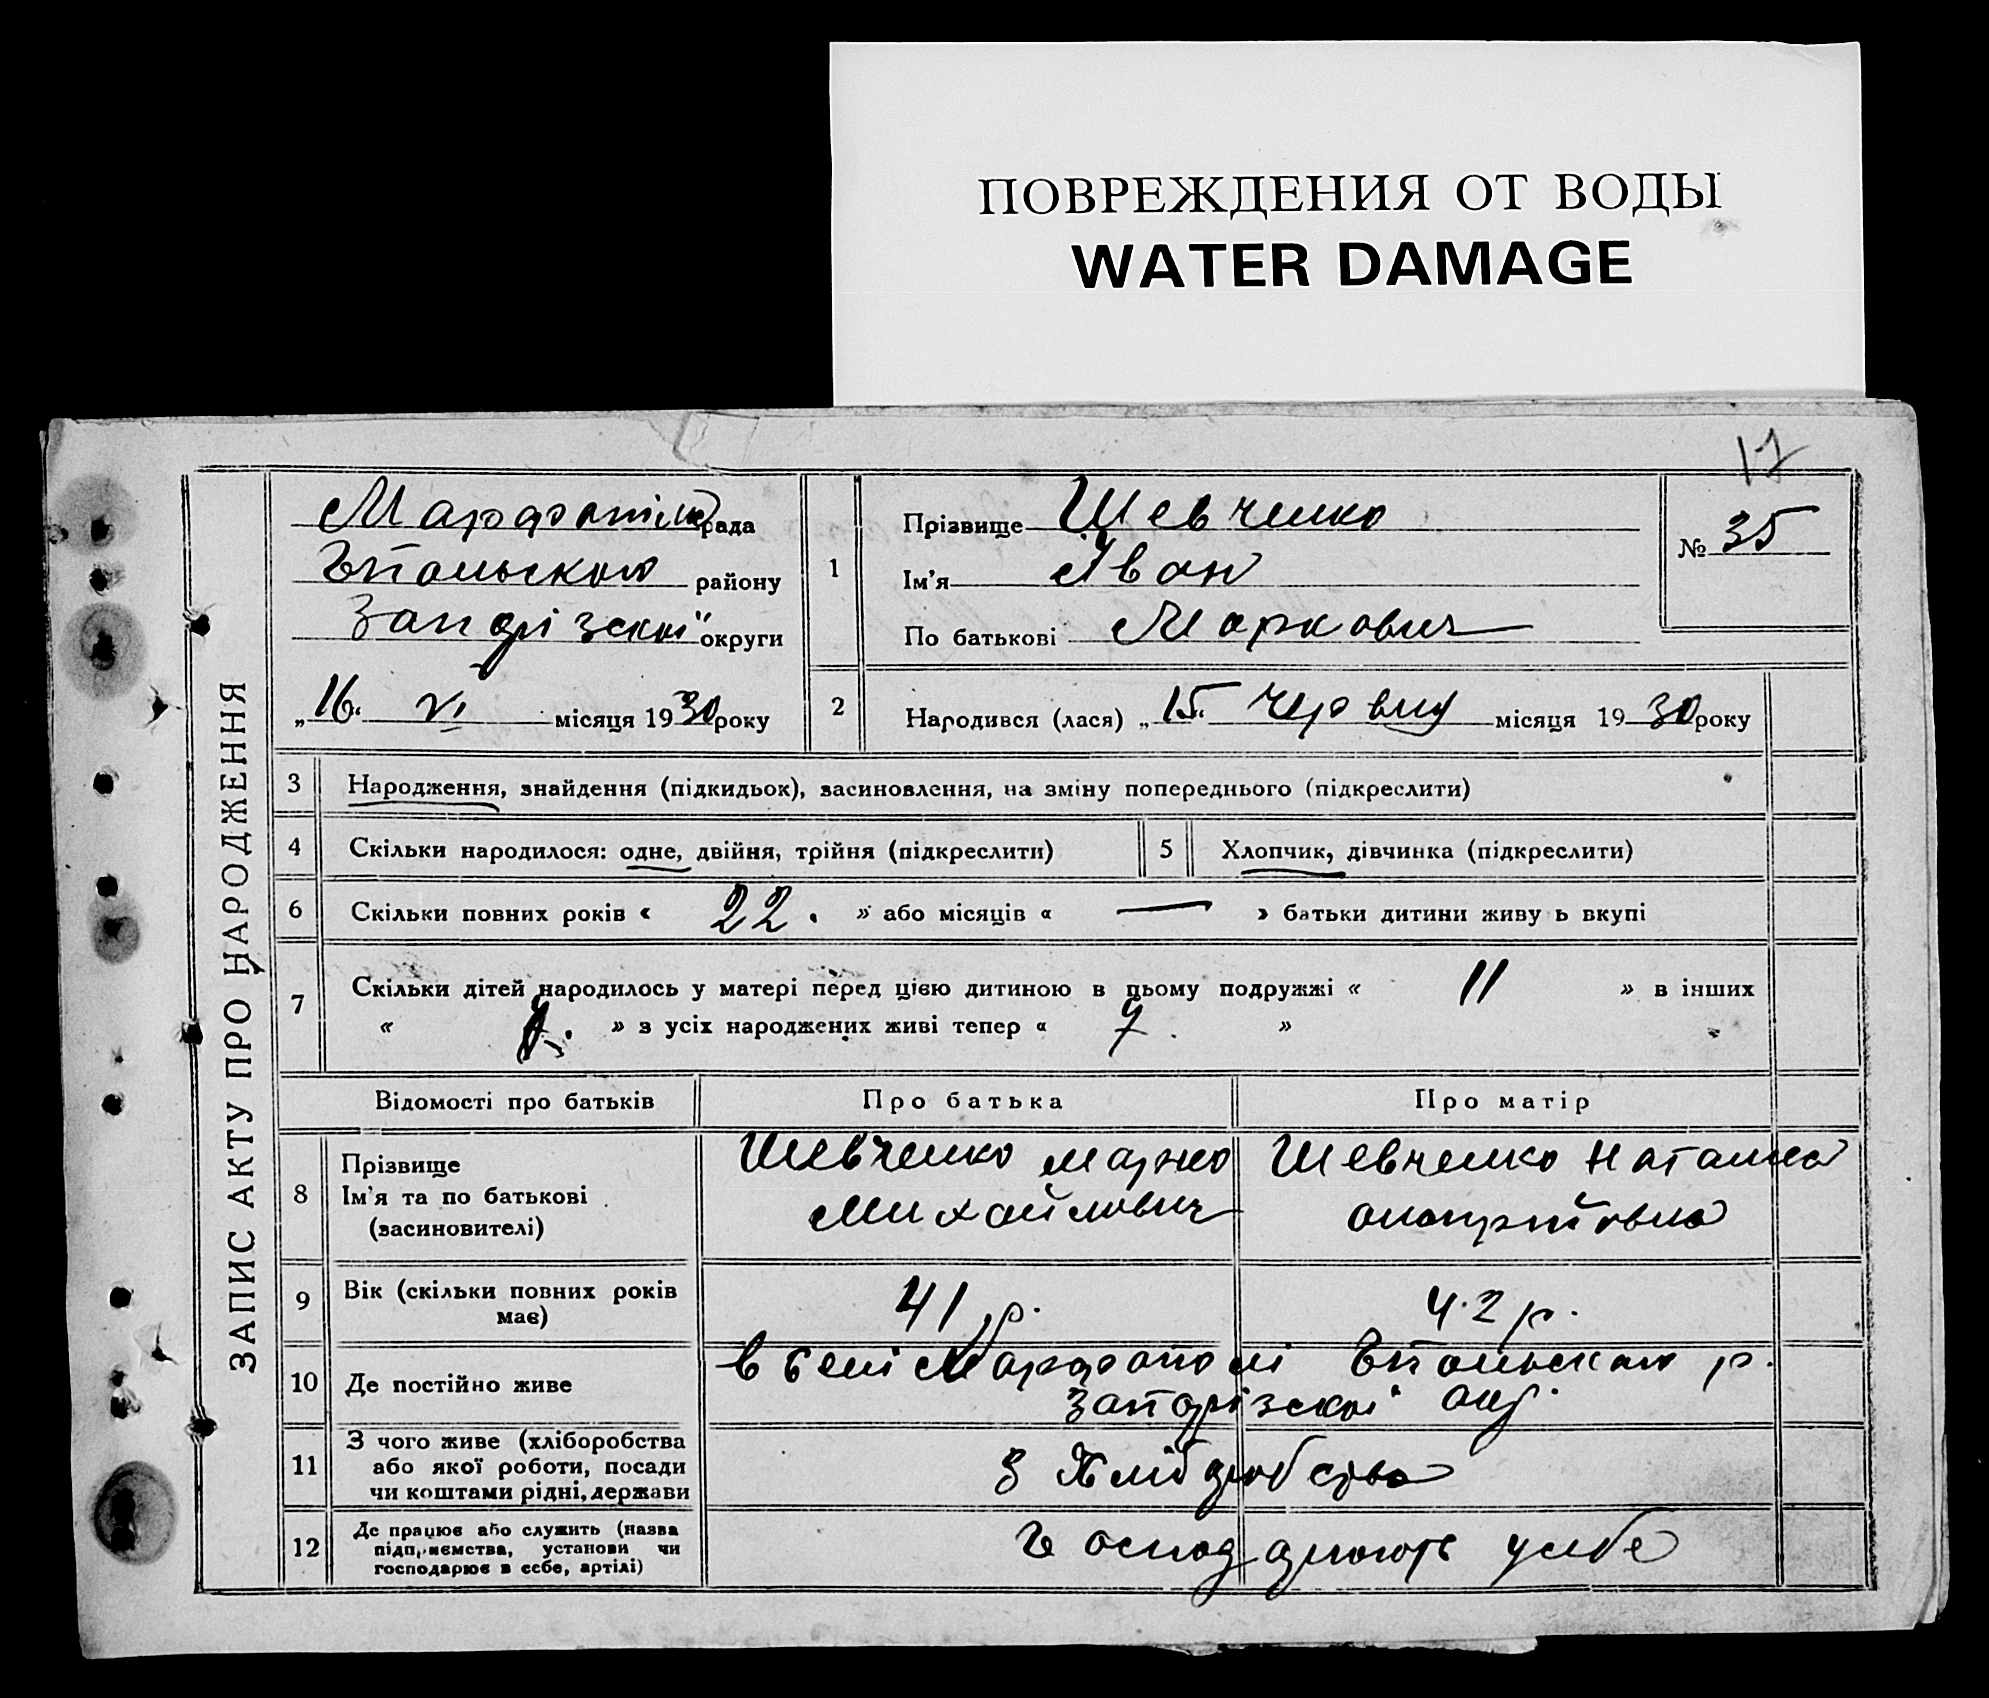 ПОВРЕЖДЕНИЯ ОТ ВОДЫ
WATER DAMAGE
17
ЗАПИС АКТУ ПРО НАРОДЖЕННЯ
рада
району
Запорізскої округи
„16“ VI місяця 1930 року
1
Прізвище Шевченко
Ім’я Іван
По батькові Маркович
№ 35
2 Народився (лася) „15“ червня місяця 1930 року
3 Народження, знайдення (підкидьок), засиновлення, на зміну попереднього (підкреслити)
4 Скільки народилося: одне, двійня, трійня (підкреслити) 5 Хлопчик, дівчинка (підкреслити)
6 Скільки повних років « 22. » або місяців « — » батьки дитини живу ь вкупі
7 Скільки дітей народилось у матері перед цією дитиною в цьому подружжі « 11 » в інших
« » з усіх народжених живі тепер « »
Відомості про батьків Про батька Про матір
8 Прізвище
Ім’я та по батькові
(засиновителі)
Шевченко Марко
Михайлович
Шевченко Наталия
9 Вік (скільки повних років
має)
41 р. 42 р.
10 Де постійно живе
в селі Марфополі р.
Запорізскої окр.
11 З чого живе (хліборобства
або якої роботи, посади
чи коштами рідні, держави
З Хліборобства
12 Де працює або служить (назва
підприємства, установи чи
господарює в себе, артілі)
Господарюють у себе